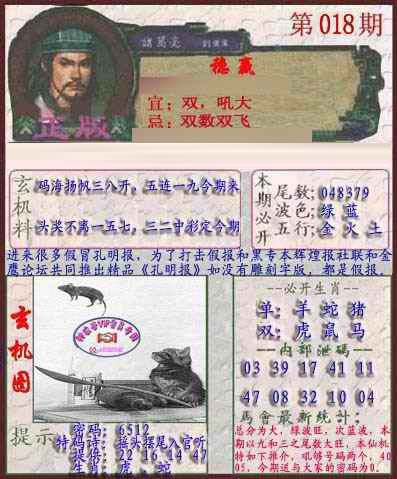 第018期
諸葛亮
稳赢
宜：双，吼大
忌：双数双飞
正版
玄机料
码海扬帆三八开，五连一九今期来
头奖不离一五七，三二中彩定今期
本期必开
尾数:048379
波色:绿 蓝
五行:金 火 土
进来很多假冒孔明报，为了打击假报和黑专本辉煌报社联和金
鹰论坛共同推出精品《孔明报》如没有雕刻字版，都是假报.
玄机图
--必开生肖--
单: 羊 蛇 猪
双: 虎 鼠 马
--内部泄码--
03 39 17 41 11
47 08 32 10 04
馬會最新统计:
总分为大，绿波旺，次蓝波，本
期以九和三之尾数大旺，本仙机
特如下推介，吼够号码两个，40
05，今期送与大家的密码为0.
提示
密码: 6512
特码诗: 摇头摆尾入官听
提供: 22 16 14 47
生肖: 虎 ; 蛇